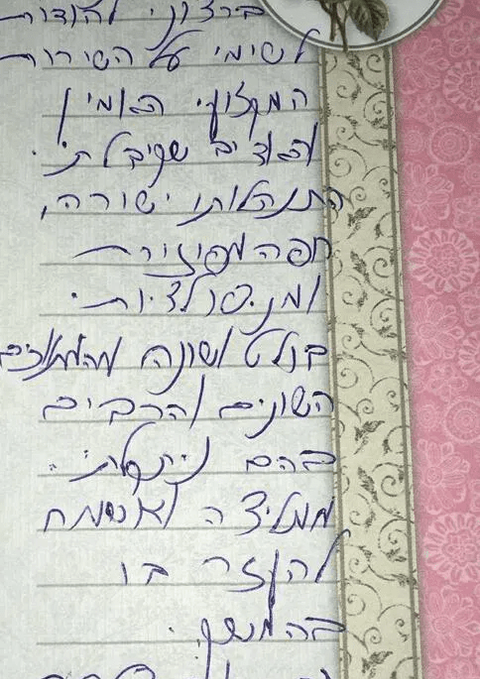 ברצוני להודות
לשימי על השירות
המקצועי האמין
והאדיב שקיבלתי.
התנהלותו ישרה,
חפה מפיזרות
ומניפולציות.
בולט ושונה מהמתווכים
השונים והרבים
בהם נתקלתי.
ממליצה ואשמח
להעזר בו
בהמשך.